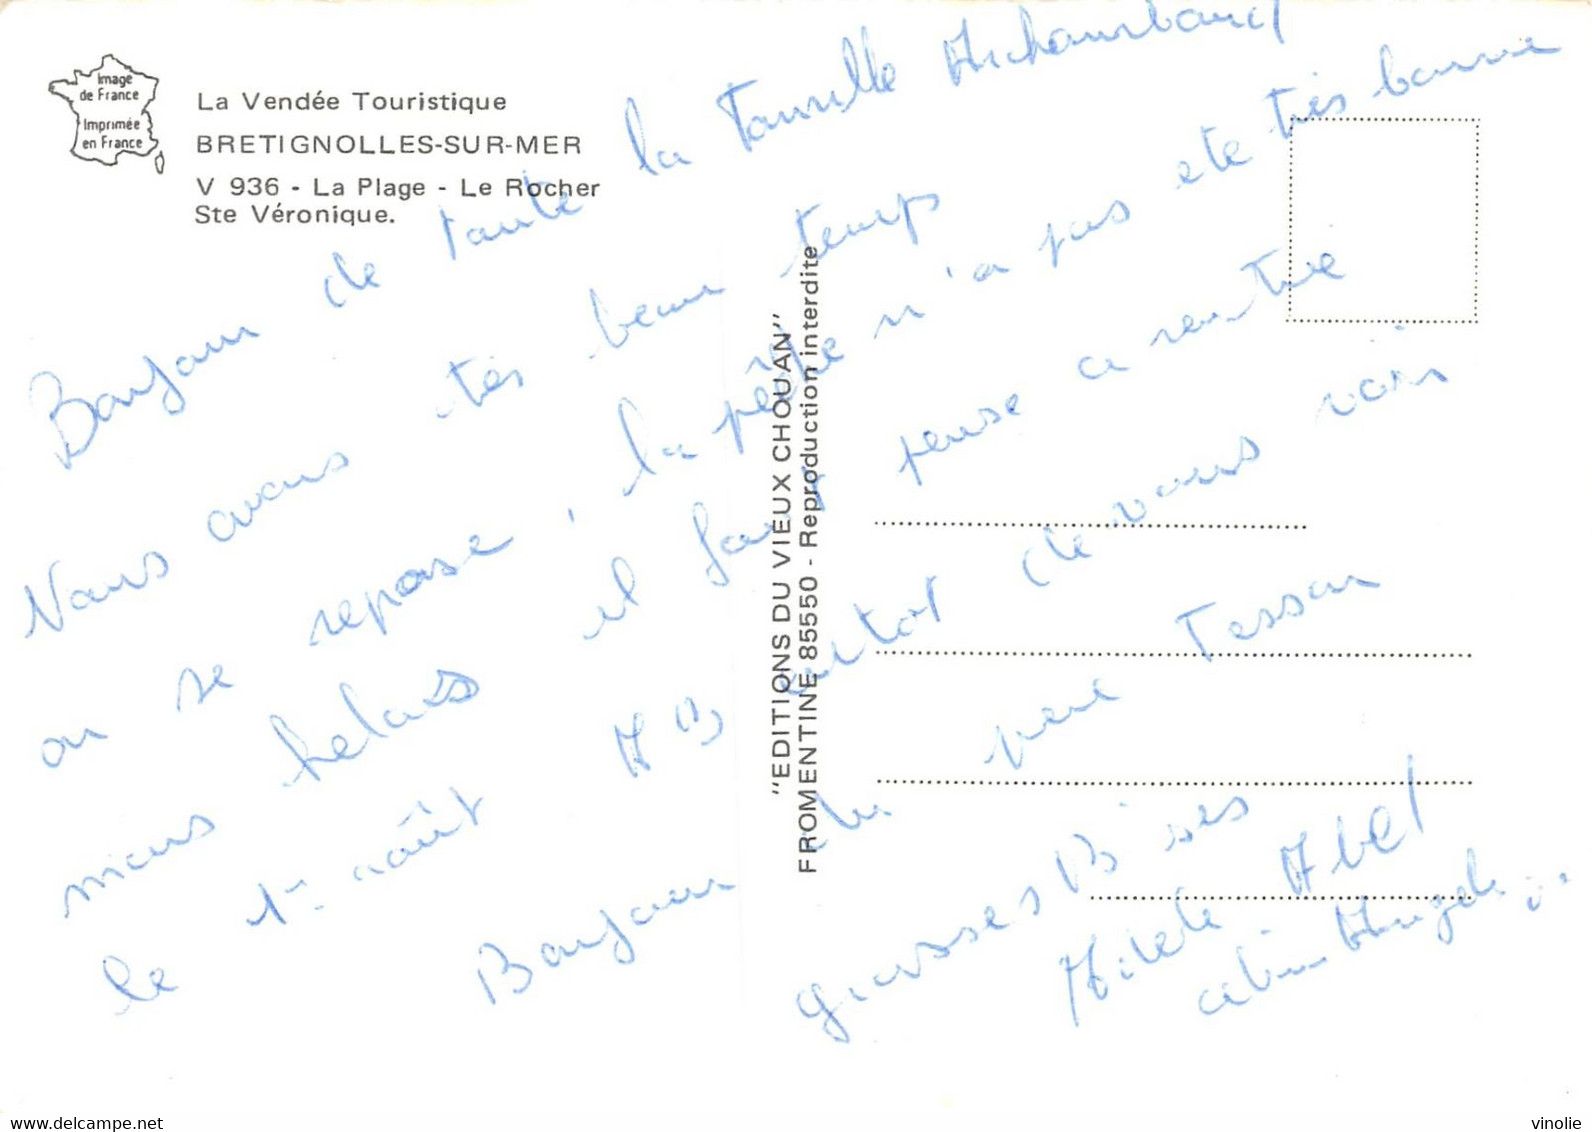 Image
de France
Imprimée
en France
La Vendée Touristique
BRETIGNOLLES-SUR-MER
V 936 - La Plage - Le Rocher
Ste Véronique.
"EDITIONS DU VIEUX CHOUAN"
FROMENTINE 85550 - Reproduction interdite
Bonjour de toute la famille Archambaud
Nous avons très beau temps
on se repose, la pêche n'a pas ete très bonne
mais helas il faut pense a rentre
le 1er août AB entot de vous voir
Bonjour du pere Tesson
grosses Bises
Abel
delcampe.net
vinolie